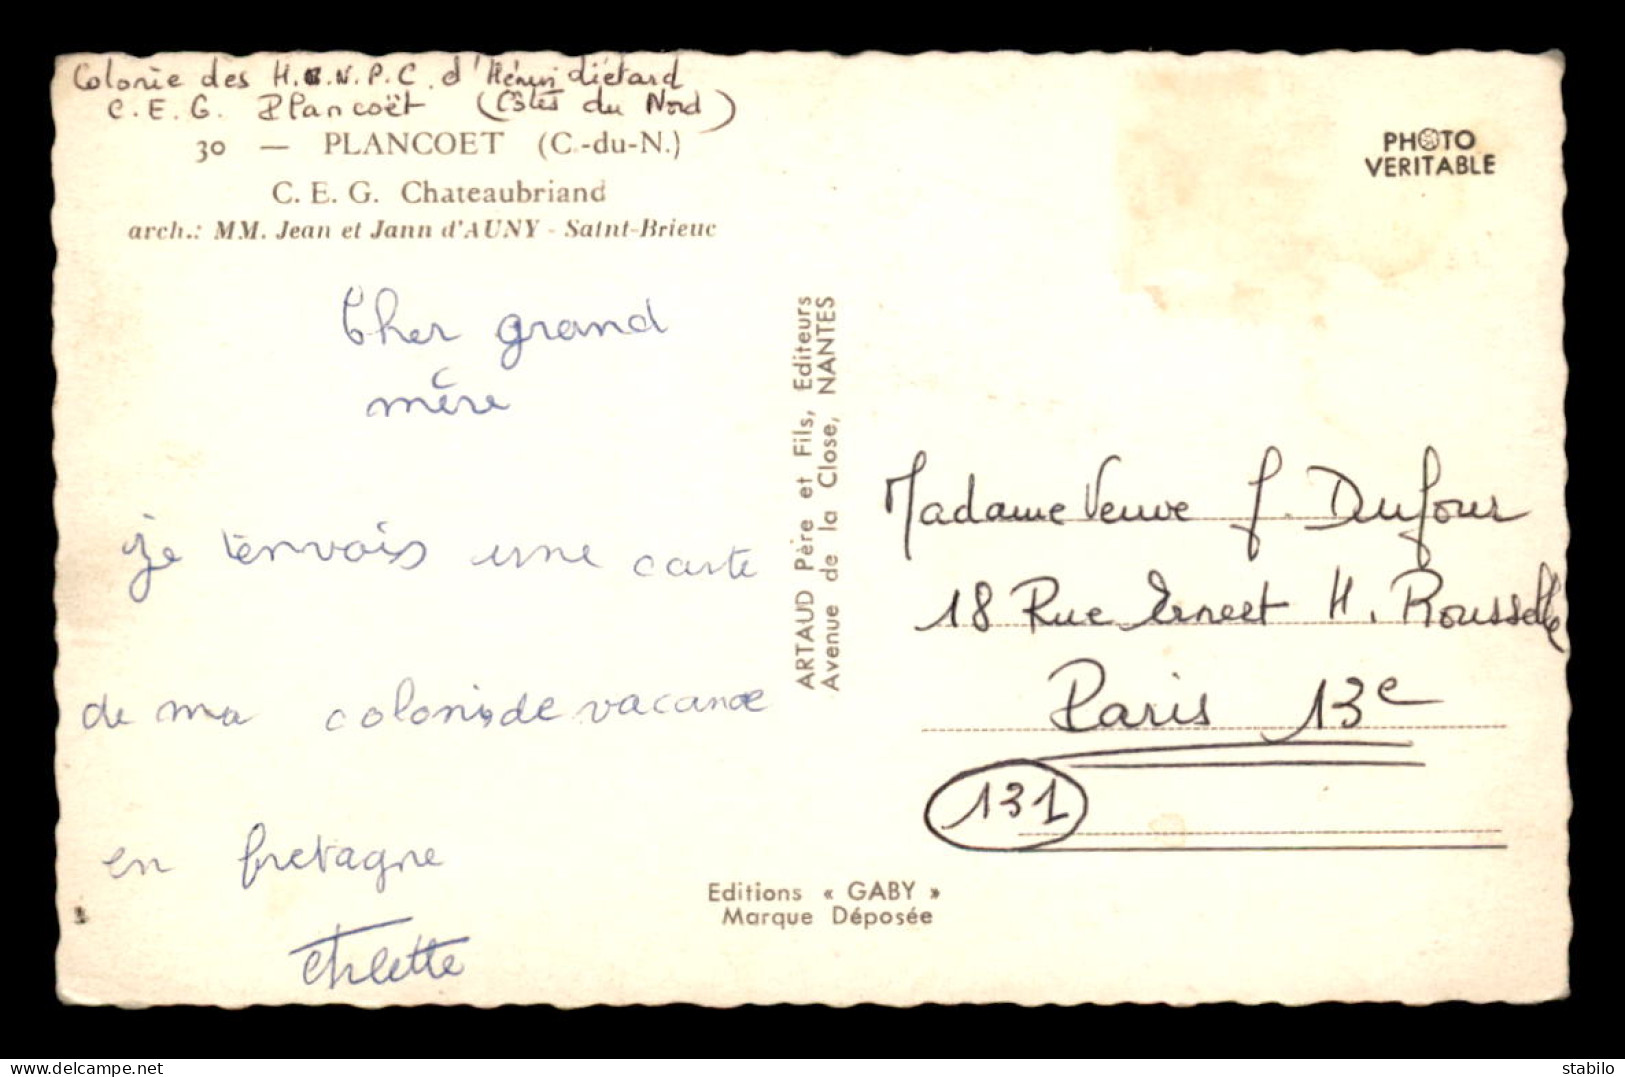 Colonie des H.G.N.P.C. d'Hénin diétard
C.E.G. Plancoët (Côtes du Nord)
30 — PLANCOET (C.-du-N.)
C. E. G. Chateaubriand
arch.: MM. Jean et Jann d'AUNY - Saint-Brieuc
Cher grand
mère
je t'envois une carte
de ma colonie de vacance
en bretagne
Arlette
ARTAUD Père et Fils, Editeurs
Avenue de la Close, NANTES
Editions « GABY »
Marque Déposée
PHOTO
VERITABLE
Madame Veuve J. Dufour
18 Rue Ernest H. Rousselle
Paris 13e
131
www.delcampe.net
stabilo